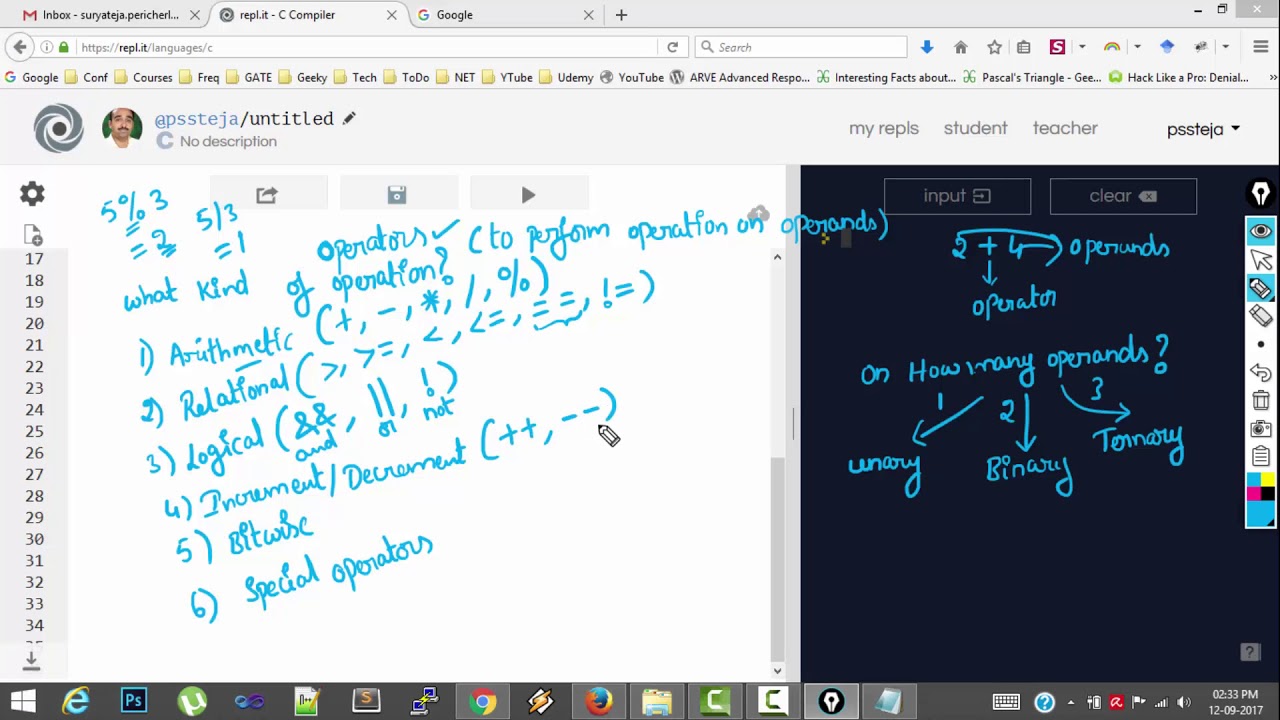 Inbox - suryateja.pericherl...
repl.it - C Compiler
Google
https://repl.it/languages/c
Search
Google Conf Courses Freq GATE Geeky Tech ToDo NET YTube Udemy YouTube ARVE Advanced Respo... Interesting Facts about... Pascal's Triangle - Gee... Hack Like a Pro: Denial... »
@pssteja/untitled
No description
my repls student teacher pssteja
input clear
5%3 5/3
= 2 = 1
operators (to perform operation on operands)
what kind of operation?
1) Arithmetic (+, -, *, /, %)
2) Relational (>, >=, <, <=, ==, !=)
3) Logical (&&, ||, !)
and or not
4) Increment/Decrement (++, --)
5) Bitwise
6) Special operators
2 + 4 operands
operator
On How many operands?
1 2 3
unary Binary Ternary
17
18
19
20
21
22
23
24
25
26
27
28
29
30
31
32
33
34
?
Ps
02:33 PM
12-09-2017